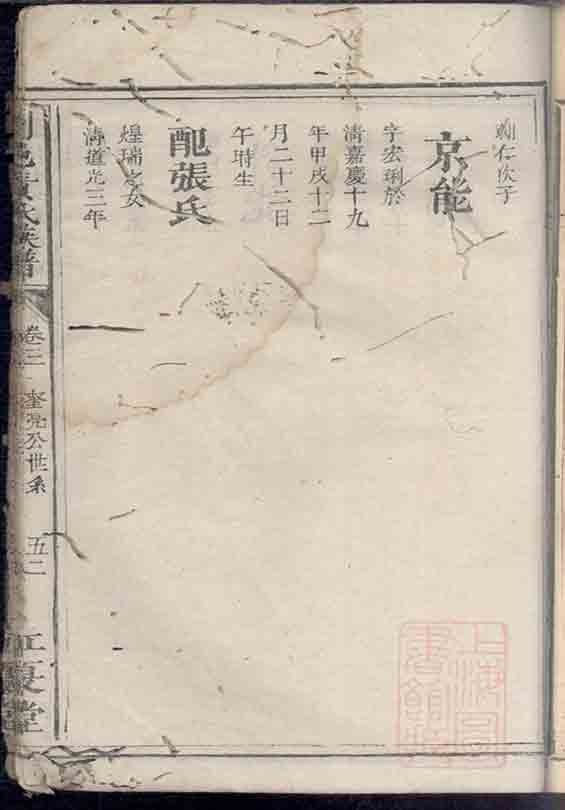 朝仁次子
京能
字宏琍於
清嘉慶十九
年甲戌十二
月二十二日
午時生
配張氏
煌瑞之女
清道光三年
邑黃氏族譜
卷三
奎亮公世系
五二
江夏堂
上海圖
書館藏